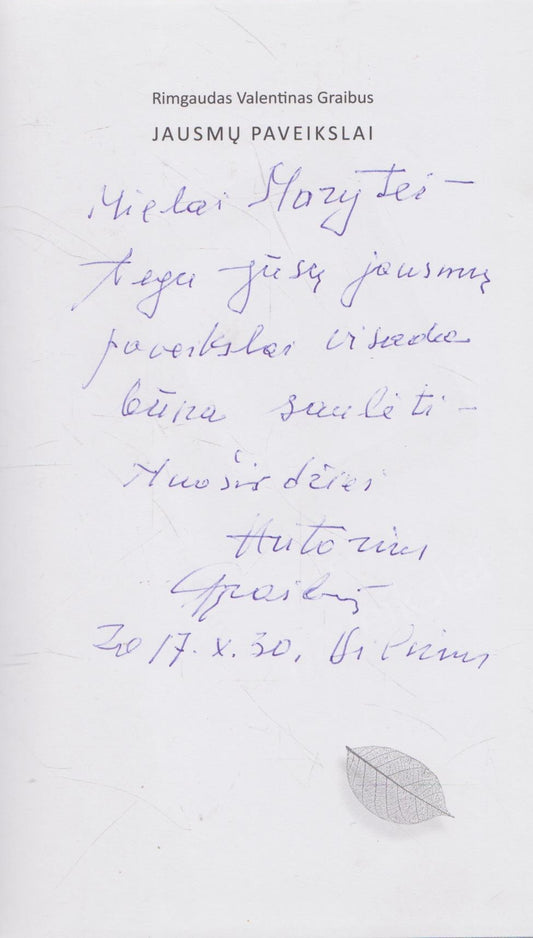 Rimgaudas Valentinas Graibus
JAUSMŲ PAVEIKSLAI
Mielai Marytei –
tegu Jūsų jausmų
paveikslai visada
būna saulėti –
Nuoširdžiai
Autorius
Graibus
2017.X.30. Vilnius